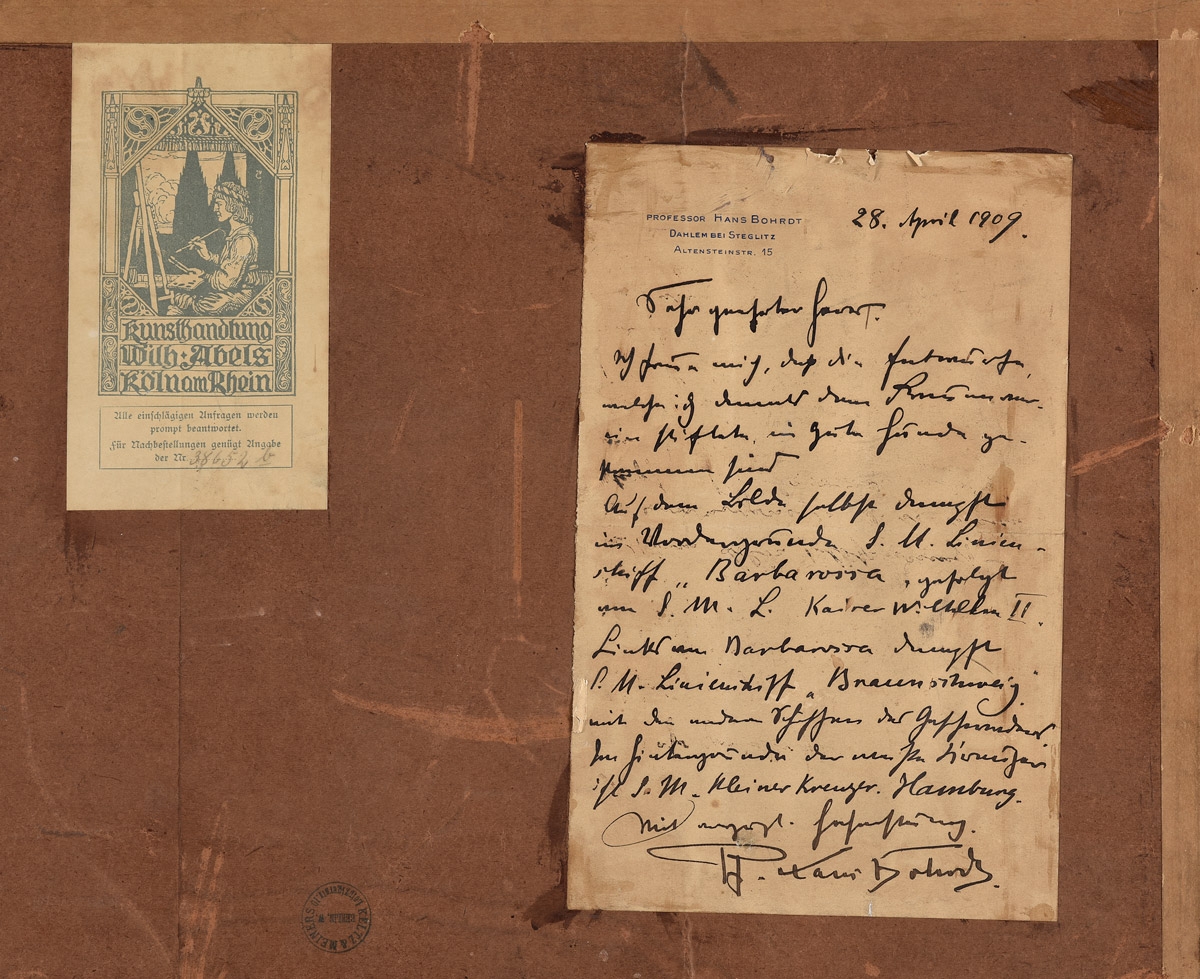 Kunsthandlung
Wilh: Abels
Köln am Rhein
Alle einschlägigen Anfragen werden
prompt beantwortet.
Für Nachbestellungen genügt Angabe
der Nr. 38652 b
PROFESSOR HANS BOHRDT
DAHLEM BEI STEGLITZ
ALTENSTEINSTR. 15
28. April 1909.
Sehr geehrter Herr.
Ich freue mich, daß die Entwürfe,
welche ich damals dem
stiftete, in gute Hände ge-
kommen sind
Auf dem Bilde selbst dampft
im Vordergrunde S. M. Linien-
schiff „Barbarossa, gefolgt
von S. M. L. Kaiser Wilhelm II.
Links von Barbarossa dampft
S. M. Linienschiff „Braunschweig"
mit den andern Schiffen des Geschwaders.
Im Hintergrunde der
ist S. M. Kleiner Kreuzer. Hamburg.
Mit Hochachtung.
Hans Bohrdt.
KELTZ & MEINERS
BERLIN. W.